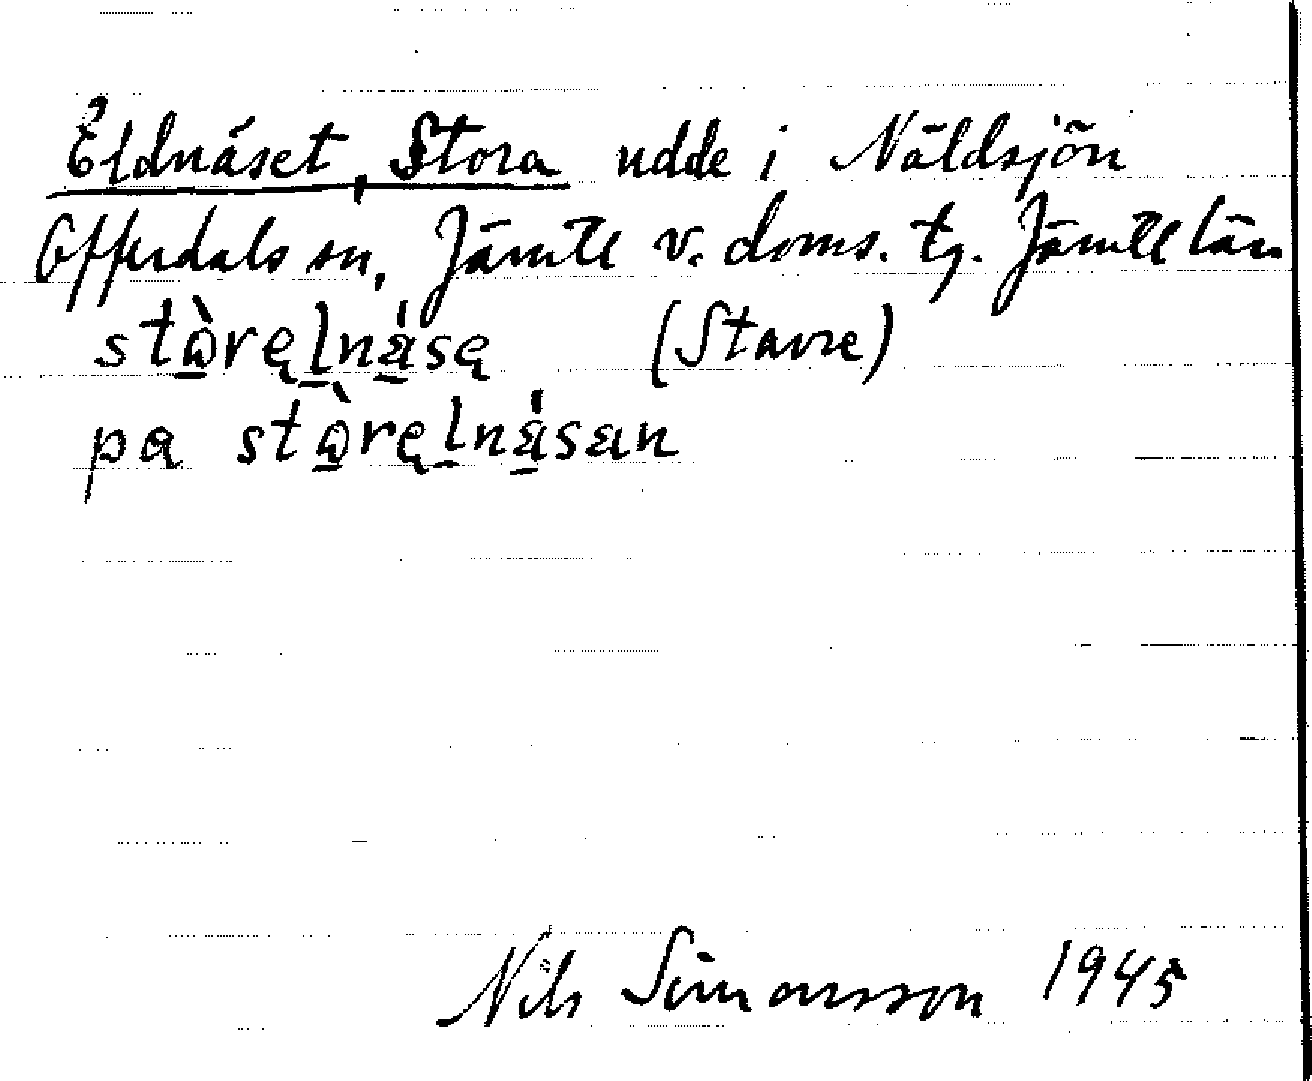 Eldnäset, Stora udde i Näldsjön
Offerdals sn, Jämtl v. doms. tg. Jämtl län
stɷ̠̀ręl̠nä̠́sę (Stavre)
pa stɷ̠̀ręl̠nä̠́sæn
Nils Simonsson 1945